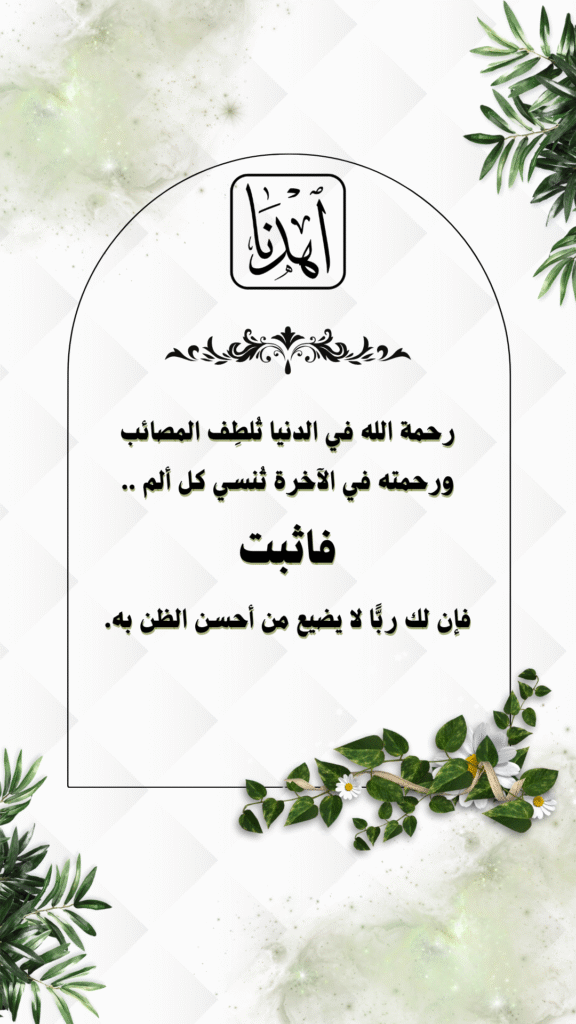 اهدنا
رحمة الله في الدنيا تُلطِف المصائب
ورحمته في الآخرة تُنسي كل ألم ..
فاثبت
فإن لك ربًّا لا يضيع من أحسن الظن به.